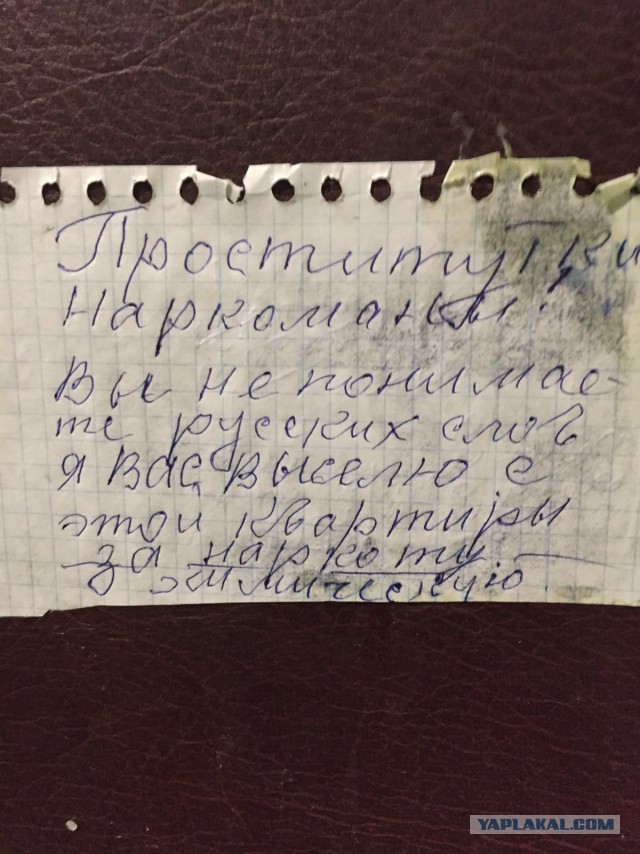 Проститутки
Наркоманы!
Вы не понимае-
те русских слов
я вас выселю с
этой квартиры
за наркоту
химическую
YAPLAKAL.COM